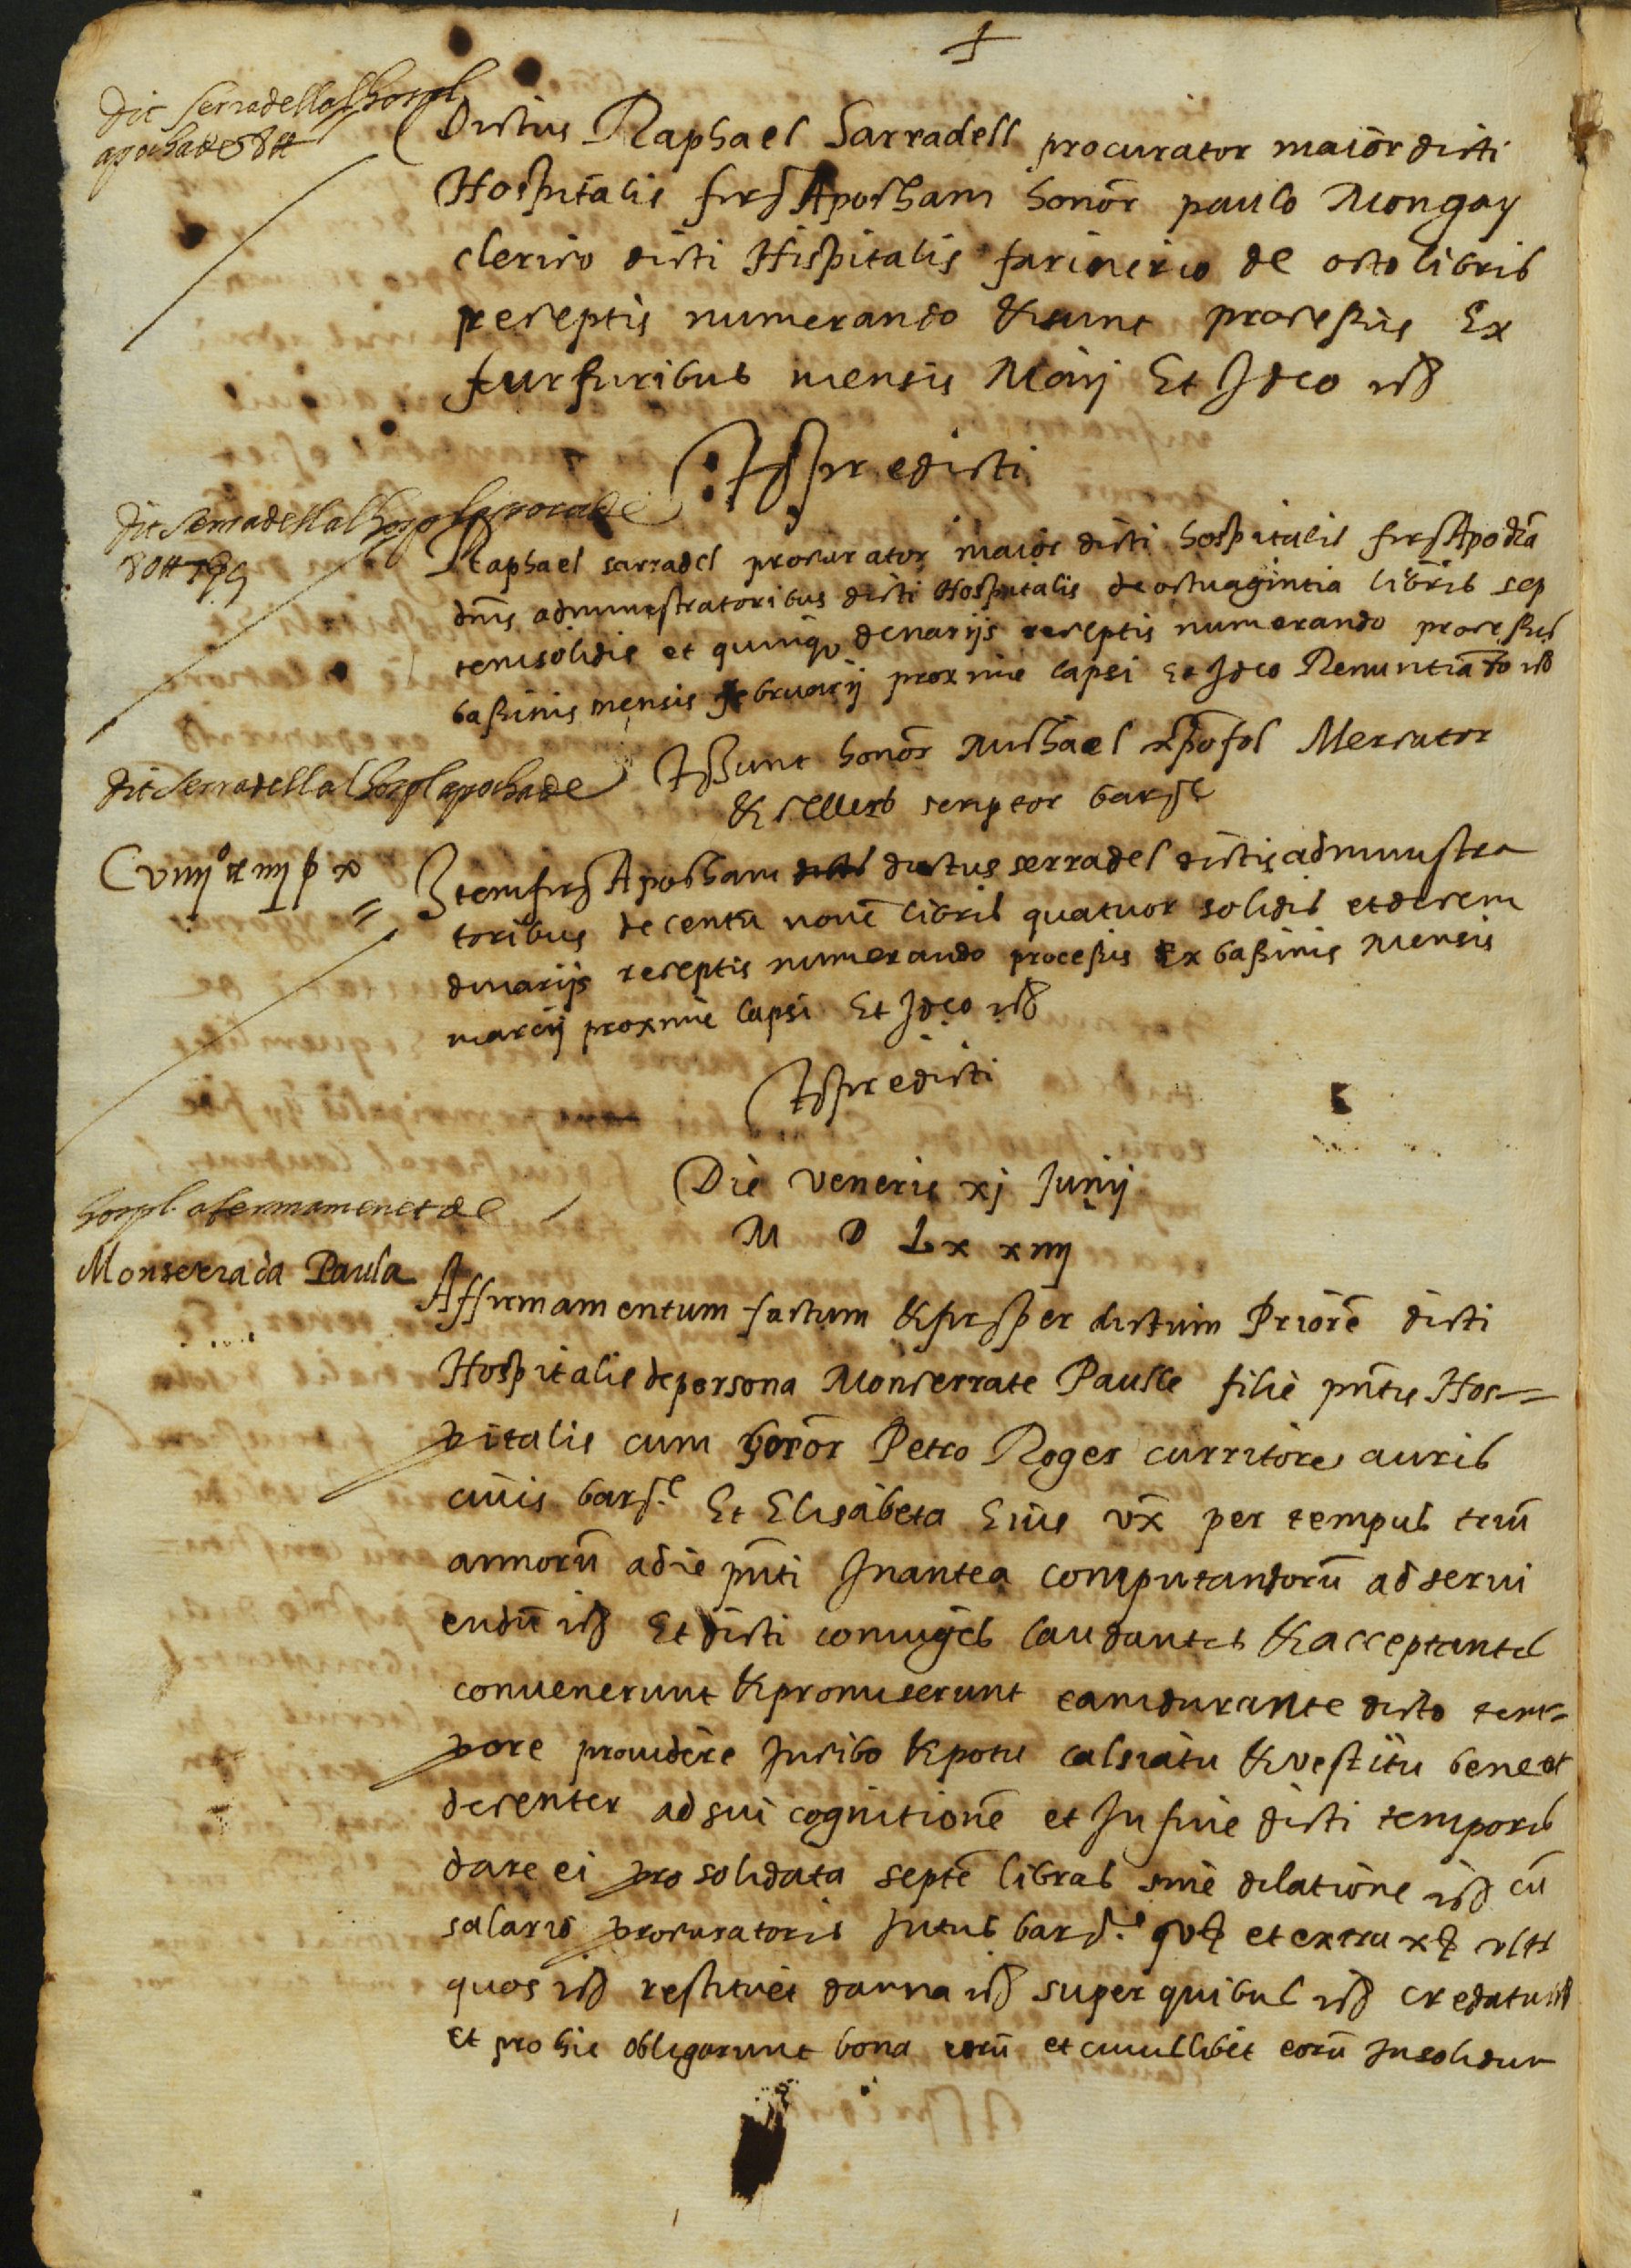 +
dit Serradell al hospl
apocha de 8 ₶
Dictus Raphael Sarradell procurator maior dicti
Hospitalis fir Apocham honor paulo Mongay
clerico dicti Hispitalis farinerio de octo libris
receptis numerando & sunt processus Ex
furfuribus mensis Maij Et Ideo
Ts predicti
dit Serradell al hospl apocha de
80 ₶ 7 s 5
Raphael sarradel procurator maior dicti hospitalis fir Apocā
dnis administratoribus dicti Hospitalis de octuagintia libris sep
tem solidis et quinq denarijs receptis numerando processis
bassinis mensis februarij proxime lapsi Et Ideo Renuntiando
Ts sunt honor Michael xpofol Mercator
& scriptor bar
dit Serradell al hospl apocha de
Cviiij ₶ iiij s x
Item fir Apocham dictus serradel dictis administra
toribus de centū novē libris quatuor solidis et decem
denarijs receptis numerando processis Ex bassinis mensis
marcij proxime lapsi Et Ideo
Ts predicti
Die veneris xj Junij
M D Lx x iiij
hospl afermament de
Monserrada Paula
Affirmamentum factum & fir per dictum Priorē dicti
Hospitalis de persona Monserrate Paulle filie pntis Hos=
pitalis cum honor Petro Roger curritore auris
civis bar Et Elisabeta Eius vx per tempus triū
annorū a die pnti Inantea computandorū ad servi
endū Et dicti coniuges laudantes & acceptantes
convenerunt & promiserunt eam durante dicto tem=
pore providere In cibo & potu calciatu & vestitu bene et
decenter ad sui cognitionē et In fine dicti temporis
dare ei pro solidata septē libras sine dilatione cū
salario procuratoris Intus bar et extra x
quos restituere damna super quibus credatur
Et pro his obligarunt bona eorū et cuiuslibet eorū Insolidum